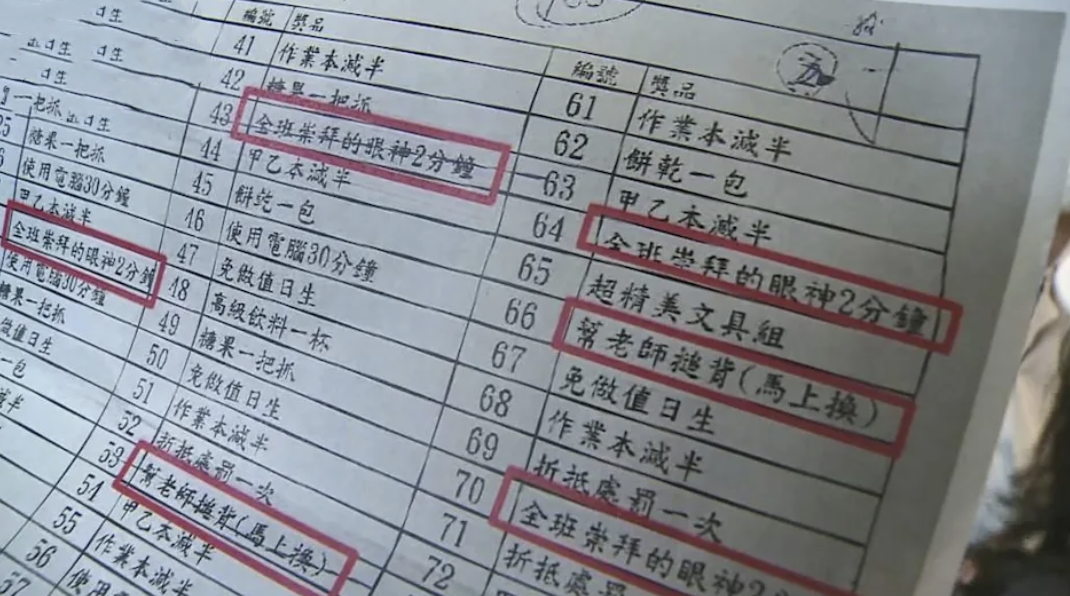 一把抓
糖果一把抓
使用電腦30分鐘
甲乙本減半
全班崇拜的眼神2分鐘
使用電腦30分鐘
糖果一把抓
做值日生
一包
減半
編號 獎品
41 作業本減半
42 糖果一把抓
43 全班崇拜的眼神2分鐘
44 甲乙本減半
45 餅乾一包
46 使用電腦30分鐘
47 免做值日生
48 高級飲料一杯
49 糖果一把抓
50 免做值日生
51 作業本減半
52 折抵處罰一次
53 幫老師搥背(馬上換)
54 甲乙本減半
55 作業本減半
56 使用
57
編號 獎品
61 作業本減半
62 餅乾一包
63 甲乙本減半
64 全班崇拜的眼神2分鐘
65 超精美文具組
66 幫老師搥背(馬上換)
67 免做值日生
68 作業本減半
69 折抵處罰一次
70 全班崇拜的眼神2
71 折抵處罰
72